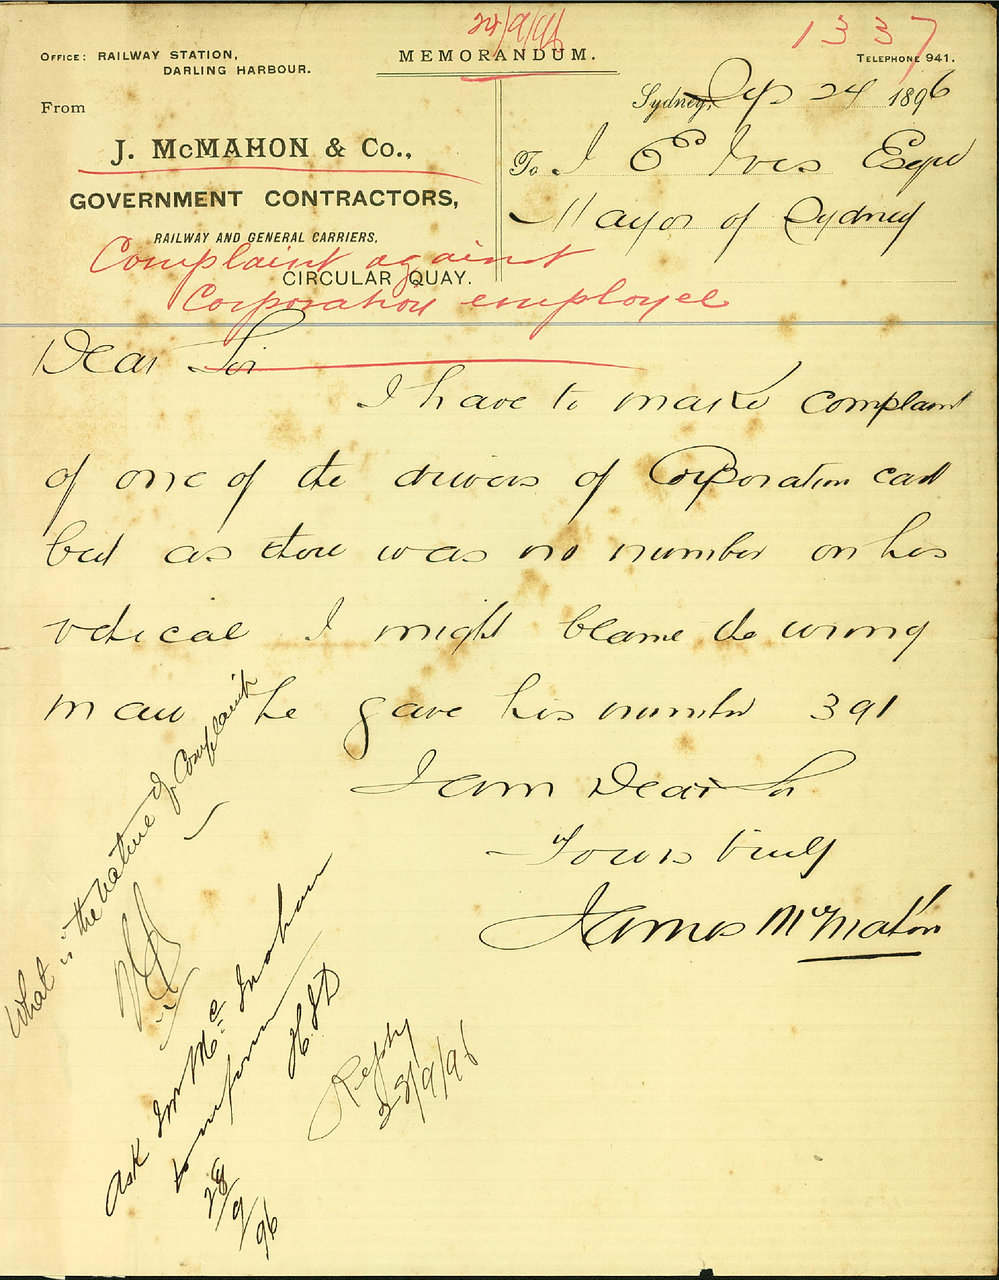 24/9/96
1337
OFFICE: RAILWAY STATION,
DARLING HARBOUR.
MEMORANDUM.
TELEPHONE 941.
From
Sydney, Sep 24 1896
J. McMAHON & Co.,
To I E Ives Esqr
GOVERNMENT CONTRACTORS,
Mayor of Sydney
RAILWAY AND GENERAL CARRIERS,
Complaint against
CIRCULAR QUAY.
Corporation employee
Dear Sir
I have to make complaint
of one of the drivers of Corporation cart
but as there was no number on his
vehical I might blame the wrong
man he gave his number 391
I am Dear Sir
Yours truly
James McMahon
What is the nature of Complaint
Ask Mr McMahon
to inform
H.J.D
28/9/96
Reply
28/9/96